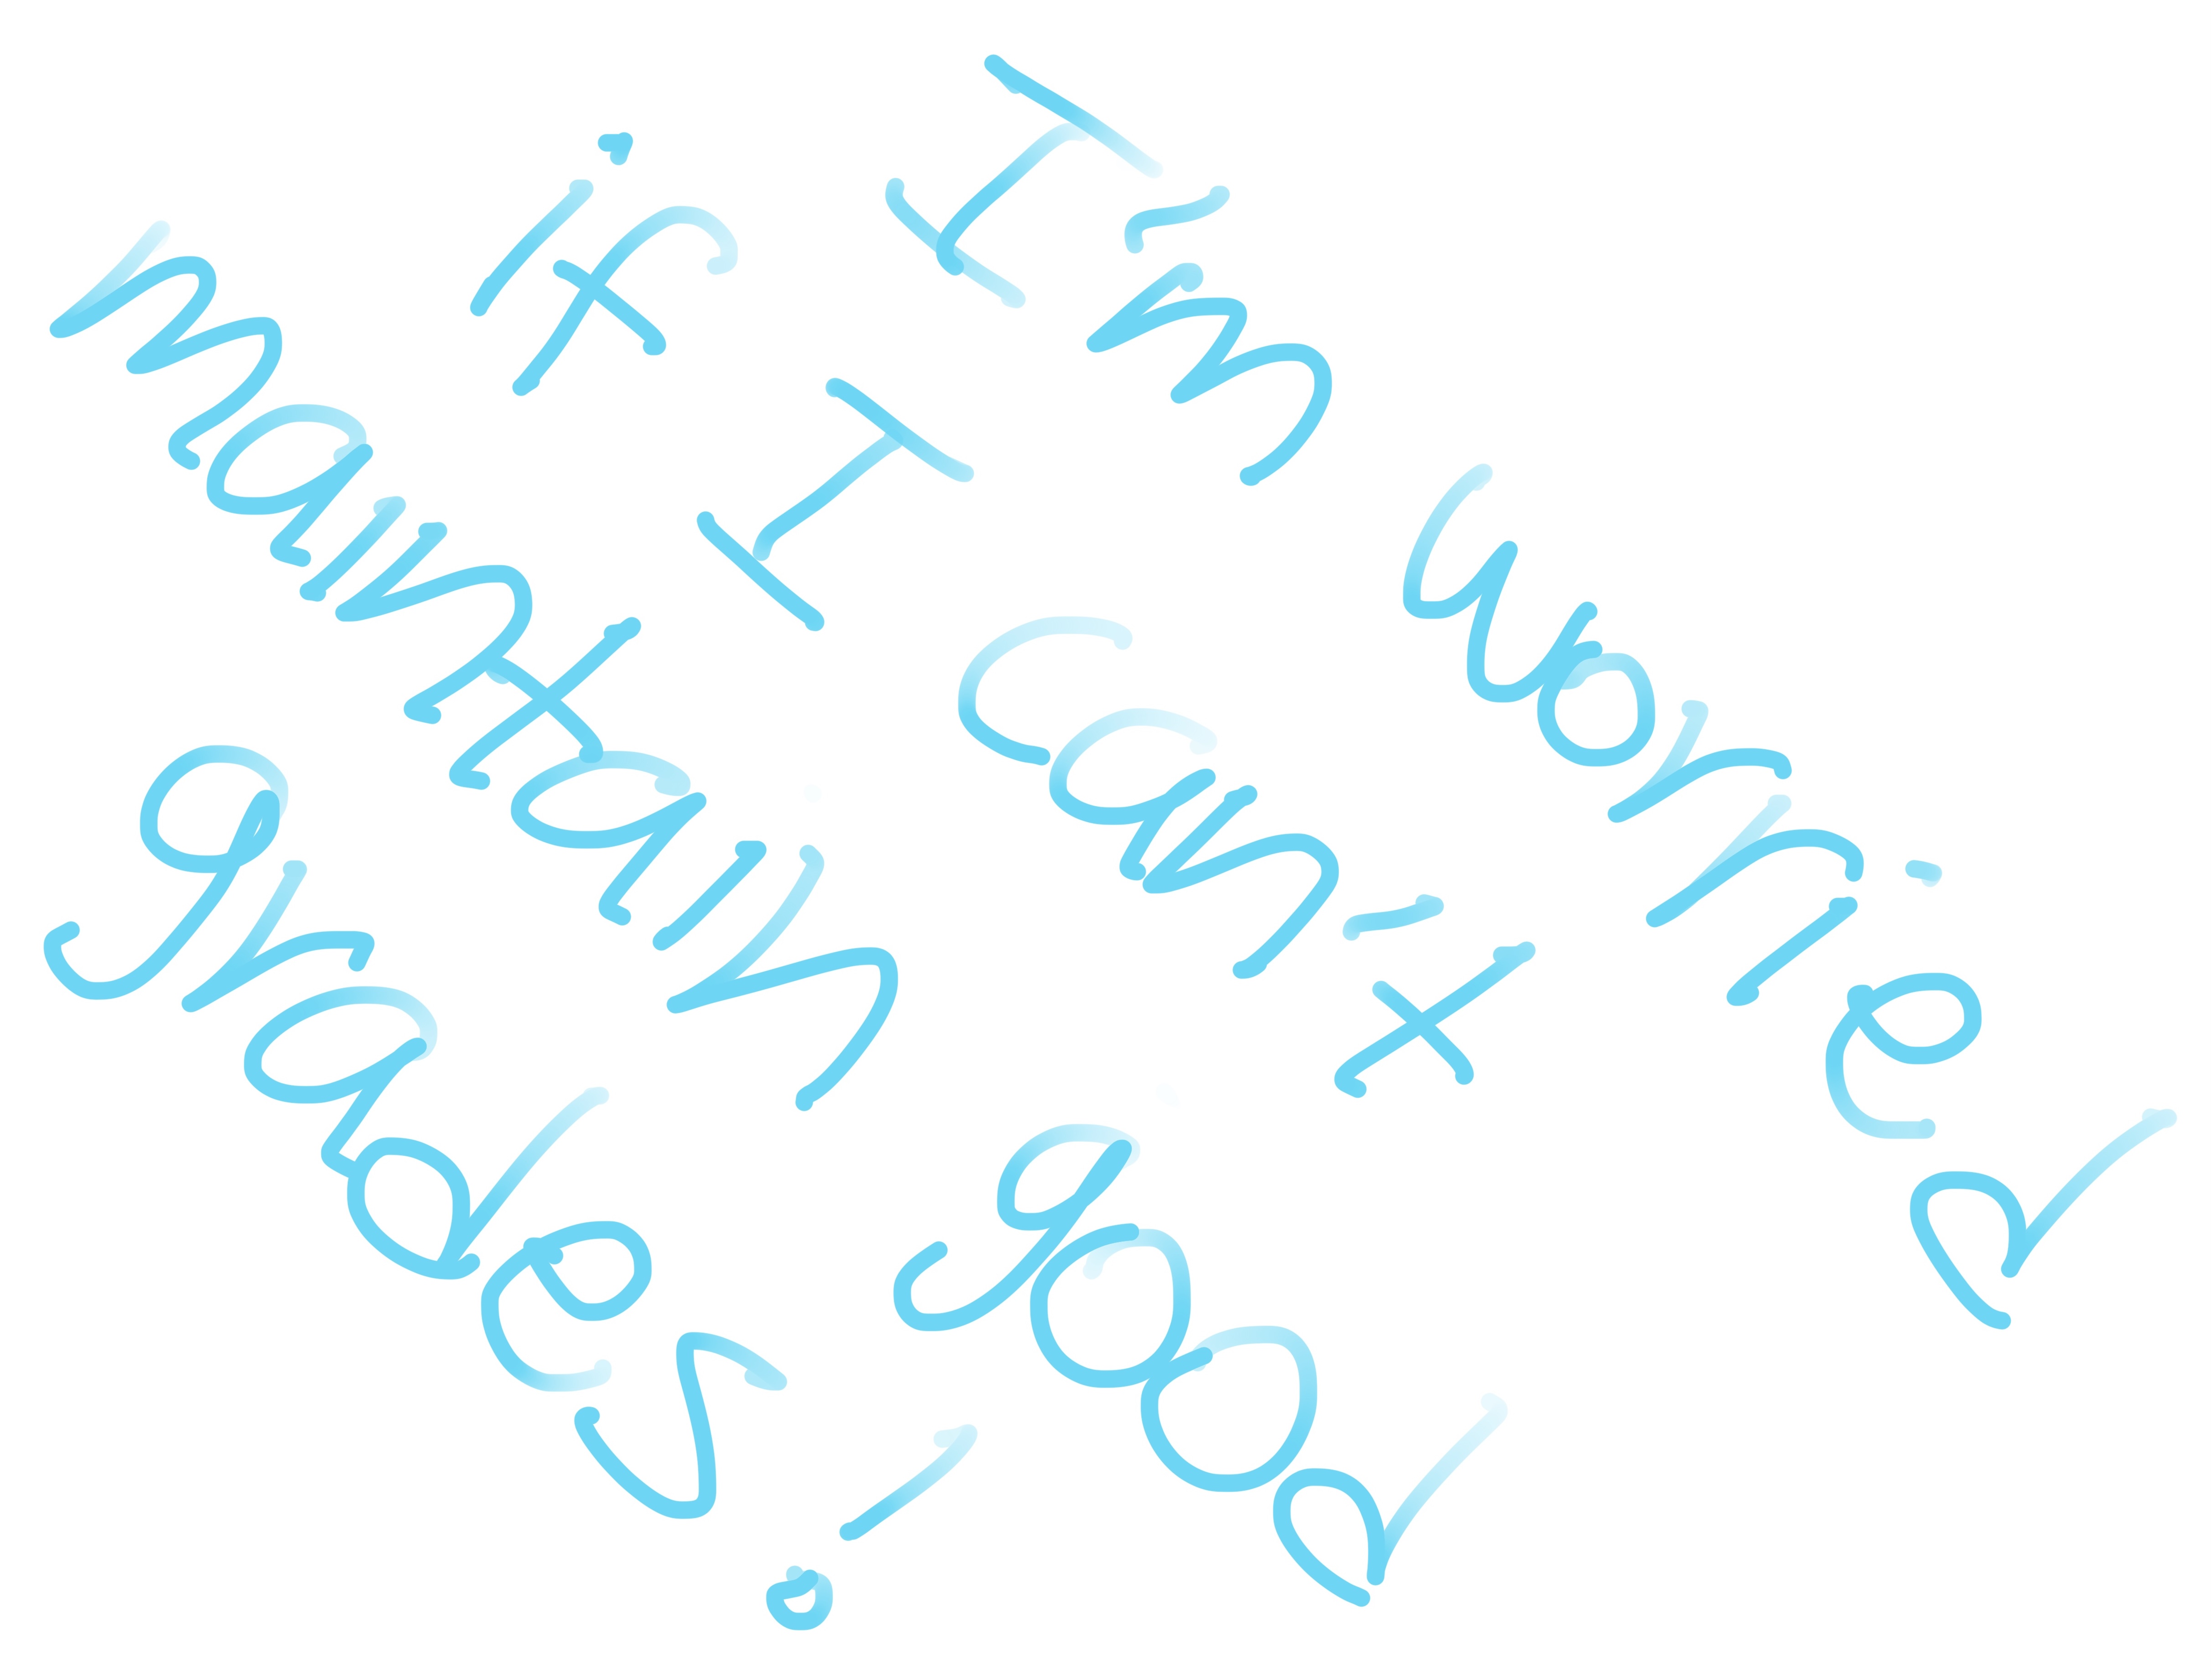 I'm worried
if I can't
maintain good
grades!